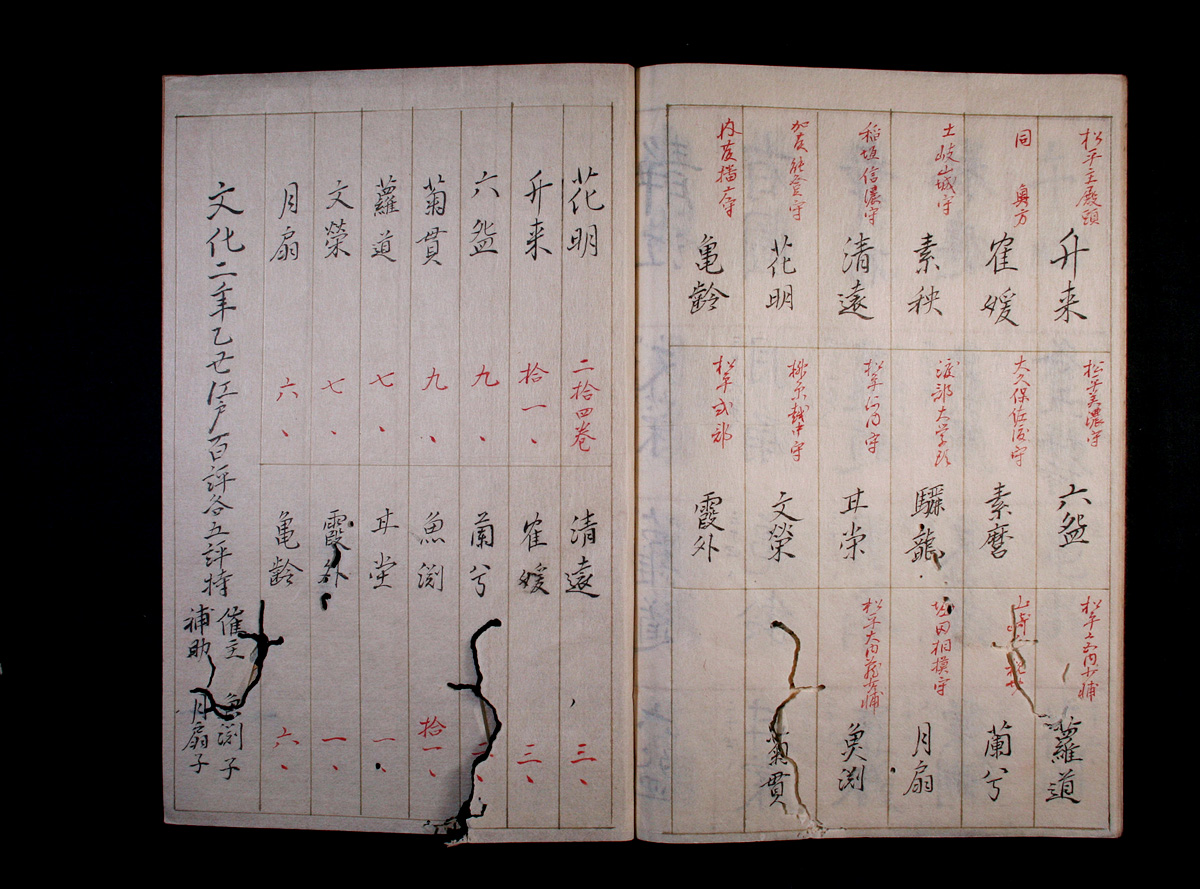 松平主殿頭
升来
同 奥方
寉媛
土岐山城守
素秧
稲垣信濃守
清遠
加藤能登守
花明
内藤播广守
亀齢
松平美濃守
六盌
大久保佐渡守
素麿
渡部大学頭
驪龍
松平河内守
耳栄
榊原越中守
文榮
松平式部
霞外
蘿道
山崎
蘭兮
堀田相模守
月扇
魚渕
菊貫
花明 二拾四巻
升来 拾一、
六盌 九、
菊貫 九、
蘿道 七、
文榮 七、
月扇 六、
清遠 三、
寉媛 三、
蘭兮 二、
魚渕 拾一、
耳堂 一、
霞外 一、
亀齢 六、
文化二年乙丑江戸百評各五評持
催主 魚渕子
補助 月扇子